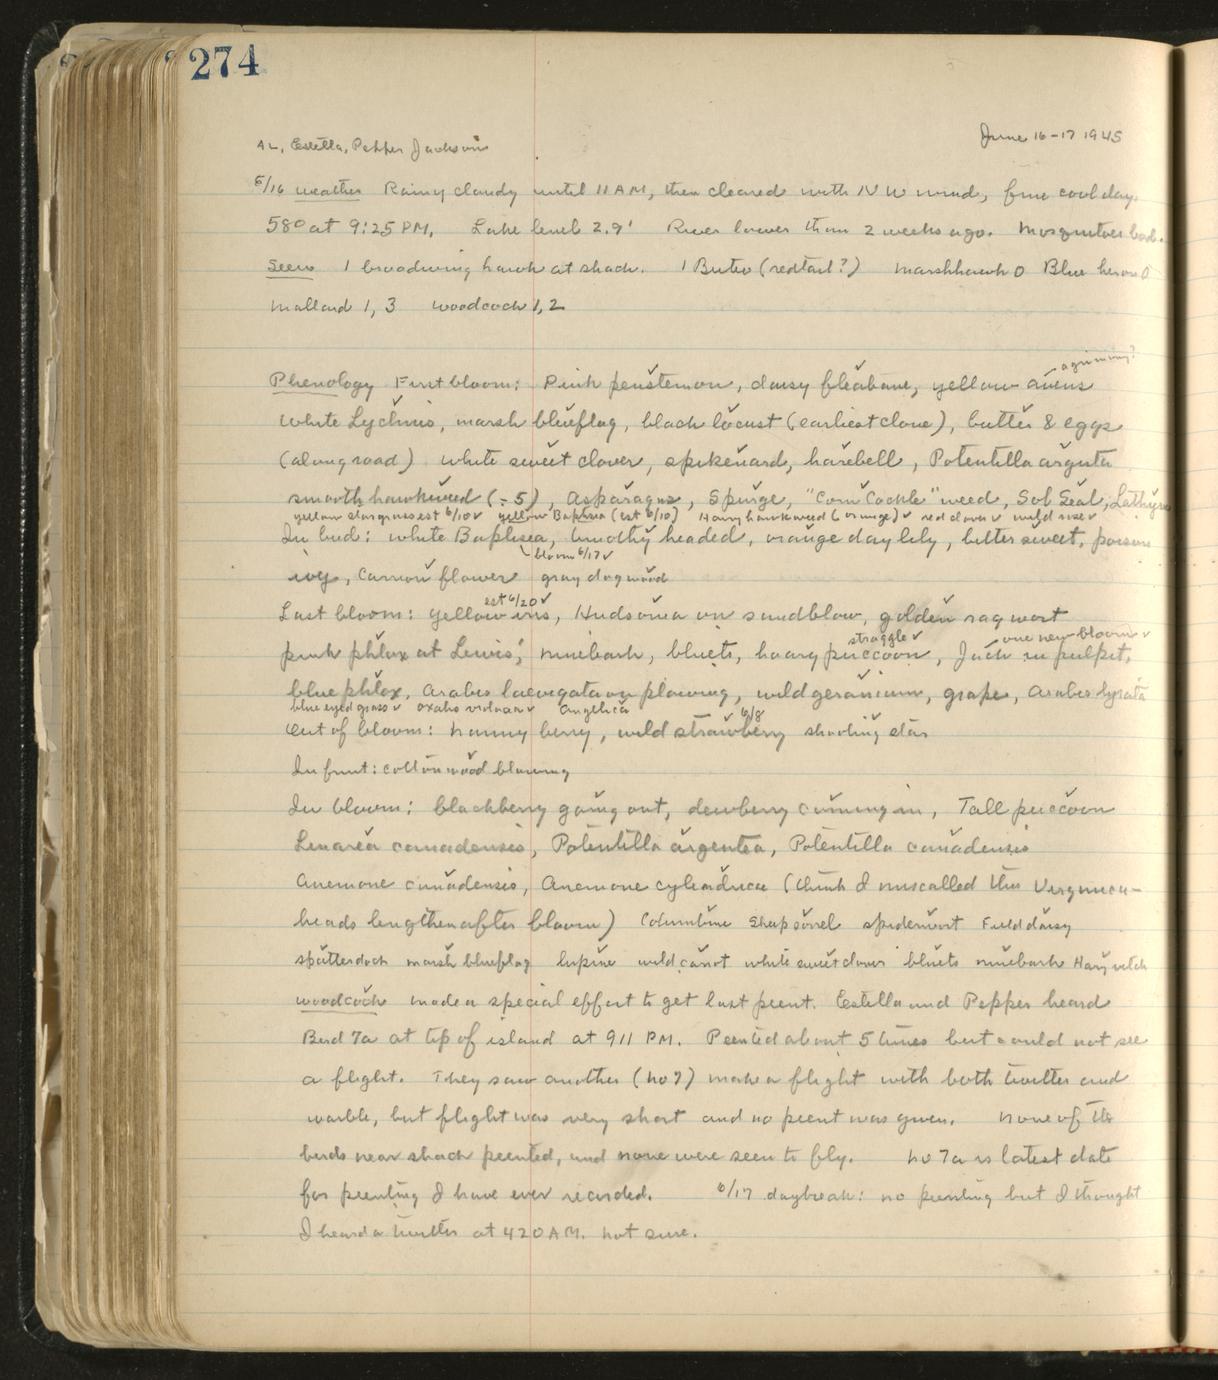 274
June 16-17 1945
AL, Estella, Pepper Jackson
6/16 weather Rainy cloudy until 11 AM, then cleared with NW wind, fine cool day.
58° at 9:25 PM. Lake level 2.9' River lower than 2 weeks ago. Mosquitoes bad.
Seen 1 broadwing hawk at shack. 1 Buteo (redtail?) Marshhawk 0 Blue heron 0
Mallard 1, 3 Woodcock 1, 2
agrimony?
Phenology First bloom: Pink penstemon, daisy fleabane, yellow avens
White Lychnis, marsh blueflag, black locust (earliest clone), butter & eggs
(along road) white sweet clover, spikenard, harebell, Potentilla arguta
smooth hawkweed (-5), Asparagus, Spurge, "Corn Cockle" weed, Sol Seal, Lathyrus
yellow stargrass est 6/10 yellow Baptisia (est 6/10) Hairy hawkweed (orange) red clover wild rose
In bud: white Baptisia, timothy headed, orange day lily, bittersweet, poison
bloom 6/17
ivy, Carrion flower gray dogwood
est 6/20
Last bloom: yellow iris, Hudsonia on sandblow, golden ragwort
straggle one new bloom
pink phlox at Lewis', ninebark, bluets, hoary puccoon, Jack in pulpit,
blue phlox, Arabis laevigata on plowing, wild geranium, grape, Arabis lyrata
blue eyed grass oxalis violacea Angelica 6/8
Out of bloom: nanny berry, wild strawberry shooting star
In fruit: cottonwood blowing
In bloom: blackberry going out, dewberry coming in, Tall puccoon
Linaria canadensis, Potentilla argentea, Potentilla canadensis
Anemone canadensis, Anemone cylindrica (think I miscalled this Virginica-
heads lengthen after bloom) Columbine Sheep sorrel spiderwort Field daisy
spatterdock marsh blueflag lupine wild carrot white sweet clover bluets ninebark Hairy vetch
woodcock made a special effort to get last peent. Estella and Pepper heard
Bird 7a at tip of island at 911 PM. Peented about 5 times but could not see
a flight. They saw another (no 7) make a flight with both twitter and
warble, but flight was very short and no peent was given. None of the
birds near shack peented, and none were seen to fly. No 7a is latest date
for peenting I have ever recorded. 6/17 daybreak: no peenting but I thought
I heard a twitter at 420 AM. not sure.